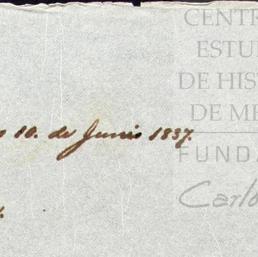 CENTR
ESTU
DE HIS
DE ME
10. de Junio 1837.
FUNDA
Carlo